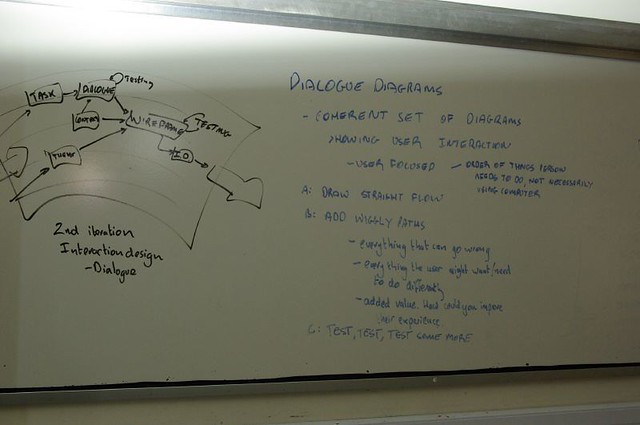 TASK
DIALOGUE
Testing
CONTENT
WIREFRAME
TESTING
THEME
IO
2nd iteration
Interaction design
- Dialogue
DIALOGUE DIAGRAMS
- COHERENT SET OF DIAGRAMS
SHOWING USER INTERACTION
- USER FOCUSED - ORDER OF THINGS PERSON
NEEDS TO DO, NOT NECESSARILY
USING COMPUTER
A: DRAW STRAIGHT FLOW
B: ADD WIGGLY PATHS
- everything that can go wrong
- everything the user might want/need
to do differently
- added value. How could you improve
their experience
C: TEST, TEST, TEST SOME MORE